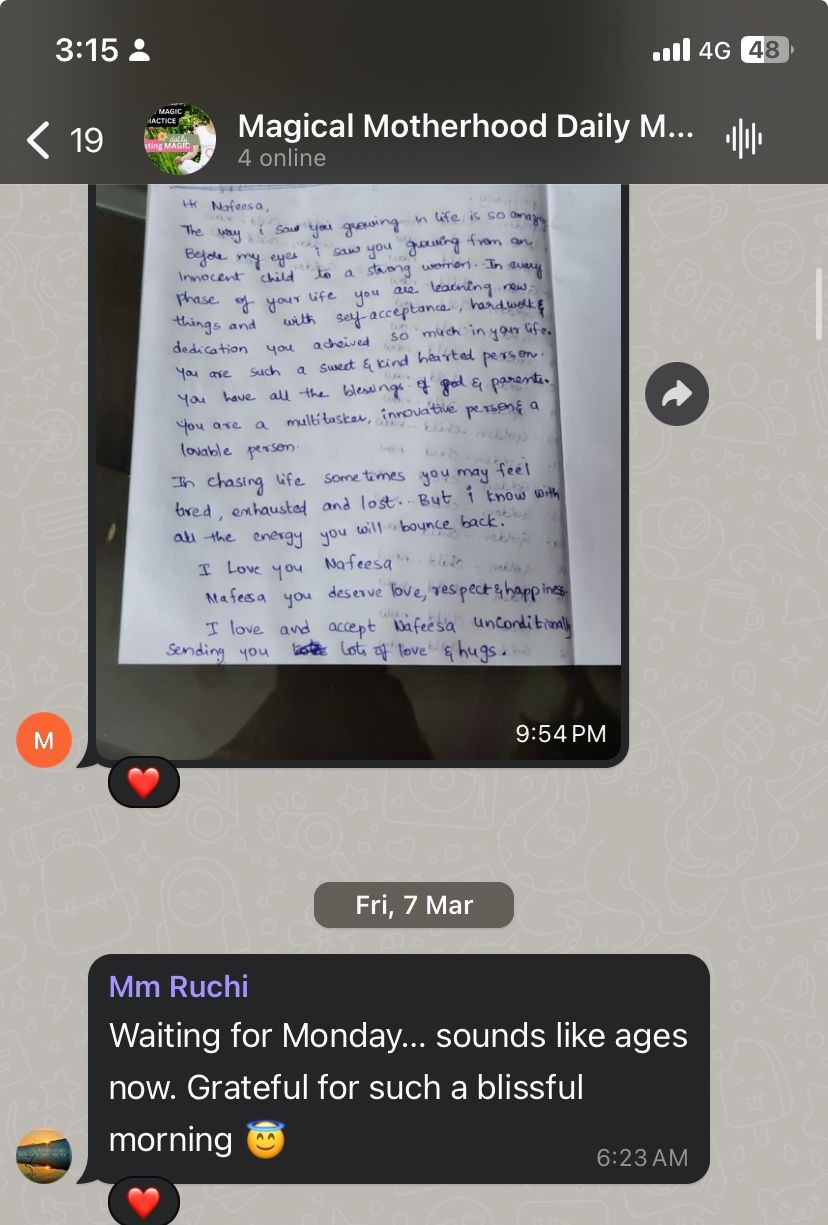 3:15
4G 48
19
MAGIC
Magical Motherhood Daily M...
4 online
Hi Nafeesa,
The way i saw you growing in life is so amazing
Before my eyes i saw you growing from an
Innocent child to a strong women. In every
phase of your life you are learning new
things and with self-acceptance, hardwork &
dedication you acheived so much in your life.
You are such a sweet & kind hearted person.
You have all the blessings of god & parents.
You are a multitasker, innovative person & a
lovable person.
In chasing life sometimes you may feel
tired, exhausted and lost. But i know with
all the energy you will bounce back.
I Love you Nafeesa
Nafeesa you deserve love, respect & happiness.
I love and accept Nafeesa unconditionally
Sending you lots of love & hugs.
9:54 PM
M
Fri, 7 Mar
Mm Ruchi
Waiting for Monday... sounds like ages
now. Grateful for such a blissful
morning 😇
6:23 AM